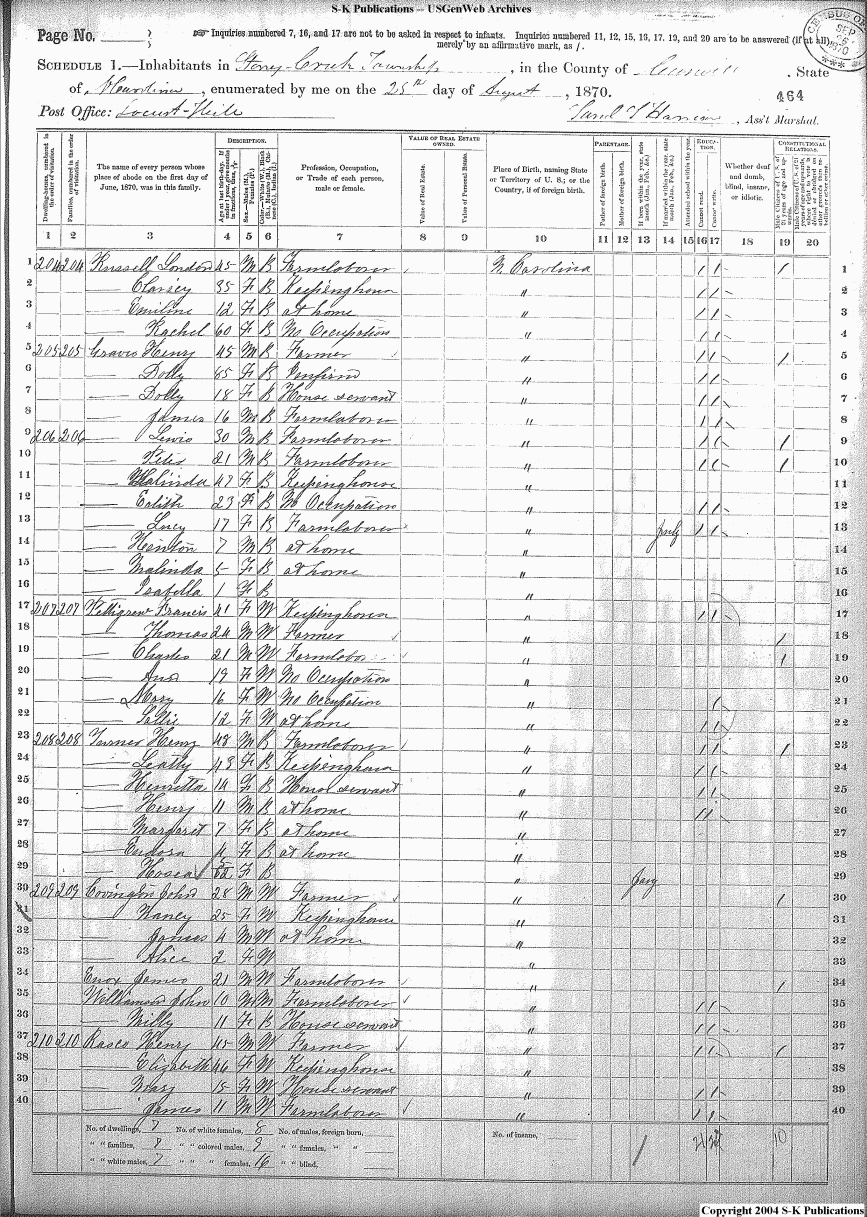 S-K Publications -- USGenWeb Archives
Page No.
Inquiries numbered 7, 16, and 17 are not to be asked in respect to infants. Inquiries numbered 11, 12, 15, 16, 17, 19, and 20 are to be answered (if at all)
merely by an affirmative mark, as /.
SCHEDULE 1.—Inhabitants in Stoney Creek Township, in the County of Caswell, State
of N Carolina, enumerated by me on the 25th day of August, 1870.
464
Post Office: Locust Hill
, Ass't Marshal.
DESCRIPTION. VALUE OF REAL ESTATE OWNED. PARENTAGE. EDUCATION. CONSTITUTIONAL RELATIONS.
Dwelling-houses, numbered in the order of visitation.
Families, numbered in the order of visitation.
The name of every person whose place of abode on the first day of June, 1870, was in this family.
Profession, Occupation, or Trade of each person, male or female.
Value of Real Estate.
Value of Personal Estate.
Place of Birth, naming State or Territory of U. S.; or the Country, if of foreign birth.
Father of foreign birth.
Mother of foreign birth.
Attended school within the year.
Cannot read.
Cannot write.
Whether deaf and dumb, blind, insane, or idiotic.
1 2 3 4 5 6 7 8 9 10 11 12 13 14 15 16 17 18 19 20
1 204 204 Russell London 45 M B Farmlaborer N Carolina / / / 1
2 35 F B Keeping house " / / 2
3 Emiline 12 F B at home " / / 3
4 Rachel 60 F B No Occupation " / / 4
5 205 205 Graves Henry 45 M B Farmer " / / / 5
6 Dolly F B " / / 6
7 Dolly 18 F B House servant " / / 7
8 James 16 M B Farmlaborer " / / 8
9 206 206 Lewis 30 M B Farmlaborer " / / / 9
10 21 M B Farmlaborer " / / / 10
11 Malinda 47 F B Keeping house " 11
12 Edith 23 F B No Occupation " / / 12
13 Lucy 17 F B Farmlaborer " July / / 13
14 Hinton 7 M B at home " 14
15 Malinda 5 F B at home " 15
16 Isabella 1 F B " 16
17 207 207 Pettigrew Francis 41 F W Keeping house " / / 17
18 Thomas 24 M W Farmer " / 18
19 Charles 21 M W " / 19
20 Ann 19 F W No Occupation " 20
21 Mary 16 F W No Occupation " / 21
22 Sallie 12 F W at home " / / 22
23 208 208 Turner Henry 48 M B Farmlaborer " / / / 23
24 43 F B Keeping house " / / 24
25 Henrietta 14 F B House servant " / / 25
26 Henry 11 M B at home " / / 26
27 Margaret 7 F B at home " 27
28 4 F B at home " 28
29 Hosea F B " Jany 29
30 209 209 Covington John 28 M W Farmer " / 30
31 Nancy 25 F W Keeping house " 31
32 James 4 M W at home 32
33 Alice 2 F W " 33
34 Enox James 21 M W Farmlaborer " / 34
35 Williamson John 10 M M Farmlaborer " / / 35
36 Milly 11 F B House servant " / / 36
37 210 210 Rasco Henry 45 M W Farmer " / / / 37
38 Elizabeth 46 F W Keeping house " 38
39 Mary 15 F W House servant " / / 39
40 James 11 M W Farmlaborer " / / 40
No. of dwellings, 7 No. of white females, 8 No. of males, foreign born, No. of insane, / 10
" " families, 8 " " colored males, 9 " " females, " "
" " white males, 7 " " " females, 16 " " blind,
Copyright 2004 S-K Publications